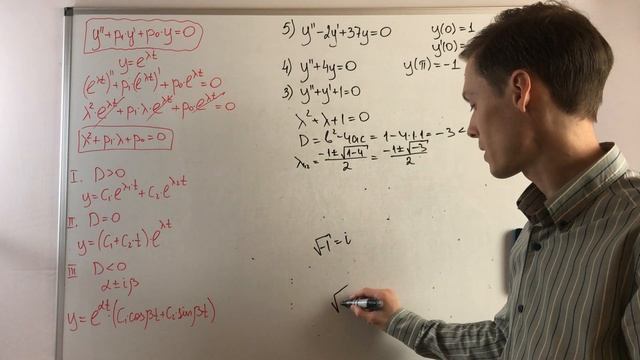 y''+p₁y'+p₀·y=0
y=e^λt
(e^λt)''+p₁(e^λt)'+p₀e^λt=0
λ²·e^λt+p₁·λ·e^λt+p₀·e^λt=0
λ²+p₁λ+p₀=0
I. D>0
y=C₁e^λ₁t+C₂e^λ₂t
II. D=0
y=(C₁+C₂·t)·e^λt
III D<0
α±iβ
y=e^αt·(C₁cosβt+C₂·sinβt)
5) y''-2y'+37y=0 y(0)=1
y'(0)=
4) y''+4y=0 y(π)=-1
3) y''+y'+1=0
λ²+λ+1=0
D=b²-4ac=1-4·1·1=-3<
λ₁,₂=(-1±√(1-4))/2=(-1±√(-3))/2
√-1=i
√